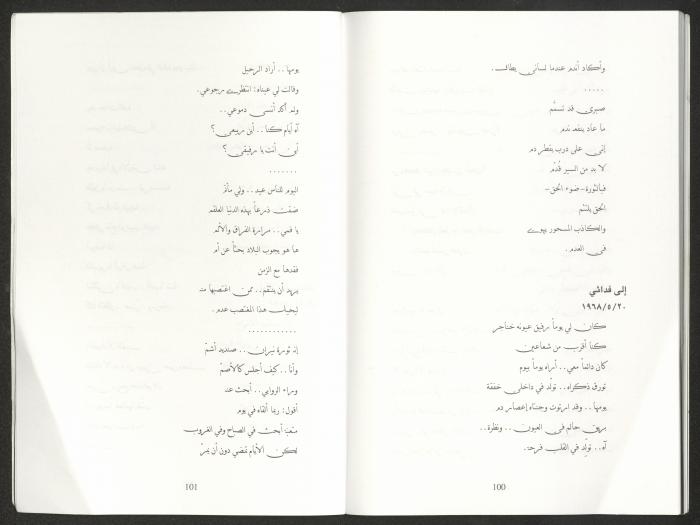 وأكاد أندم عندما لساني يطاف.
.....
صبري قد تسمَّم
ما عاد ينفعه ندم
إنّي على درب يقطر دم
لا بد من السير قُدُم
فبالثورة -ضوء الحق-
الحق يلتئم
والكاذب المسحور يهوي
في العدم.
إلى فدائي
١٩٦٨/٥/٢٠
كان لي يوماً رفيق عيونه خناجر
كنا أقرب من شعاعين
كان دائماً معي.. أراه يوماً بيوم
تورق ذكراه.. تولّد في داخلي خفقة
يومها.. وقد ارتوت وجنتاه إعصار دم
بريق حالم في العيون.. ونظرة..
آه.. تولّد في القلب فرحة.
100
يومها.. أراد الرحيل
وقالت لي عيناه: انتظري رجوعي.
ولم أكد أنسى دموعي..
آه أيام كنا.. أين ربيعي؟
أين أنت يا رفيقي؟
.......
اليوم للناس عيد.. ولي مأتمُ
ضقت ذرعاً بهذه الدنيا العلقم
يا فمي.. مرارة الفراق والألم
ها هو يجوب البلاد بحثاً عن أم
فقدها مع الزمن
يريد أن ينتقم.. ممن اغتصبها منه
ليحيلن هذا المغتصب عدم.
............
إنه ثورة نيران.. صنديد أشمّ
وأنا.. كيف أجلس كالأصمّ
وراء الروابي.. أبحث عنه
أقول: ربما ألقاه في يوم
متعبة أبحث في الصباح وفي الغروب
لكن الأيام تمضي دون أن يمرّ
101